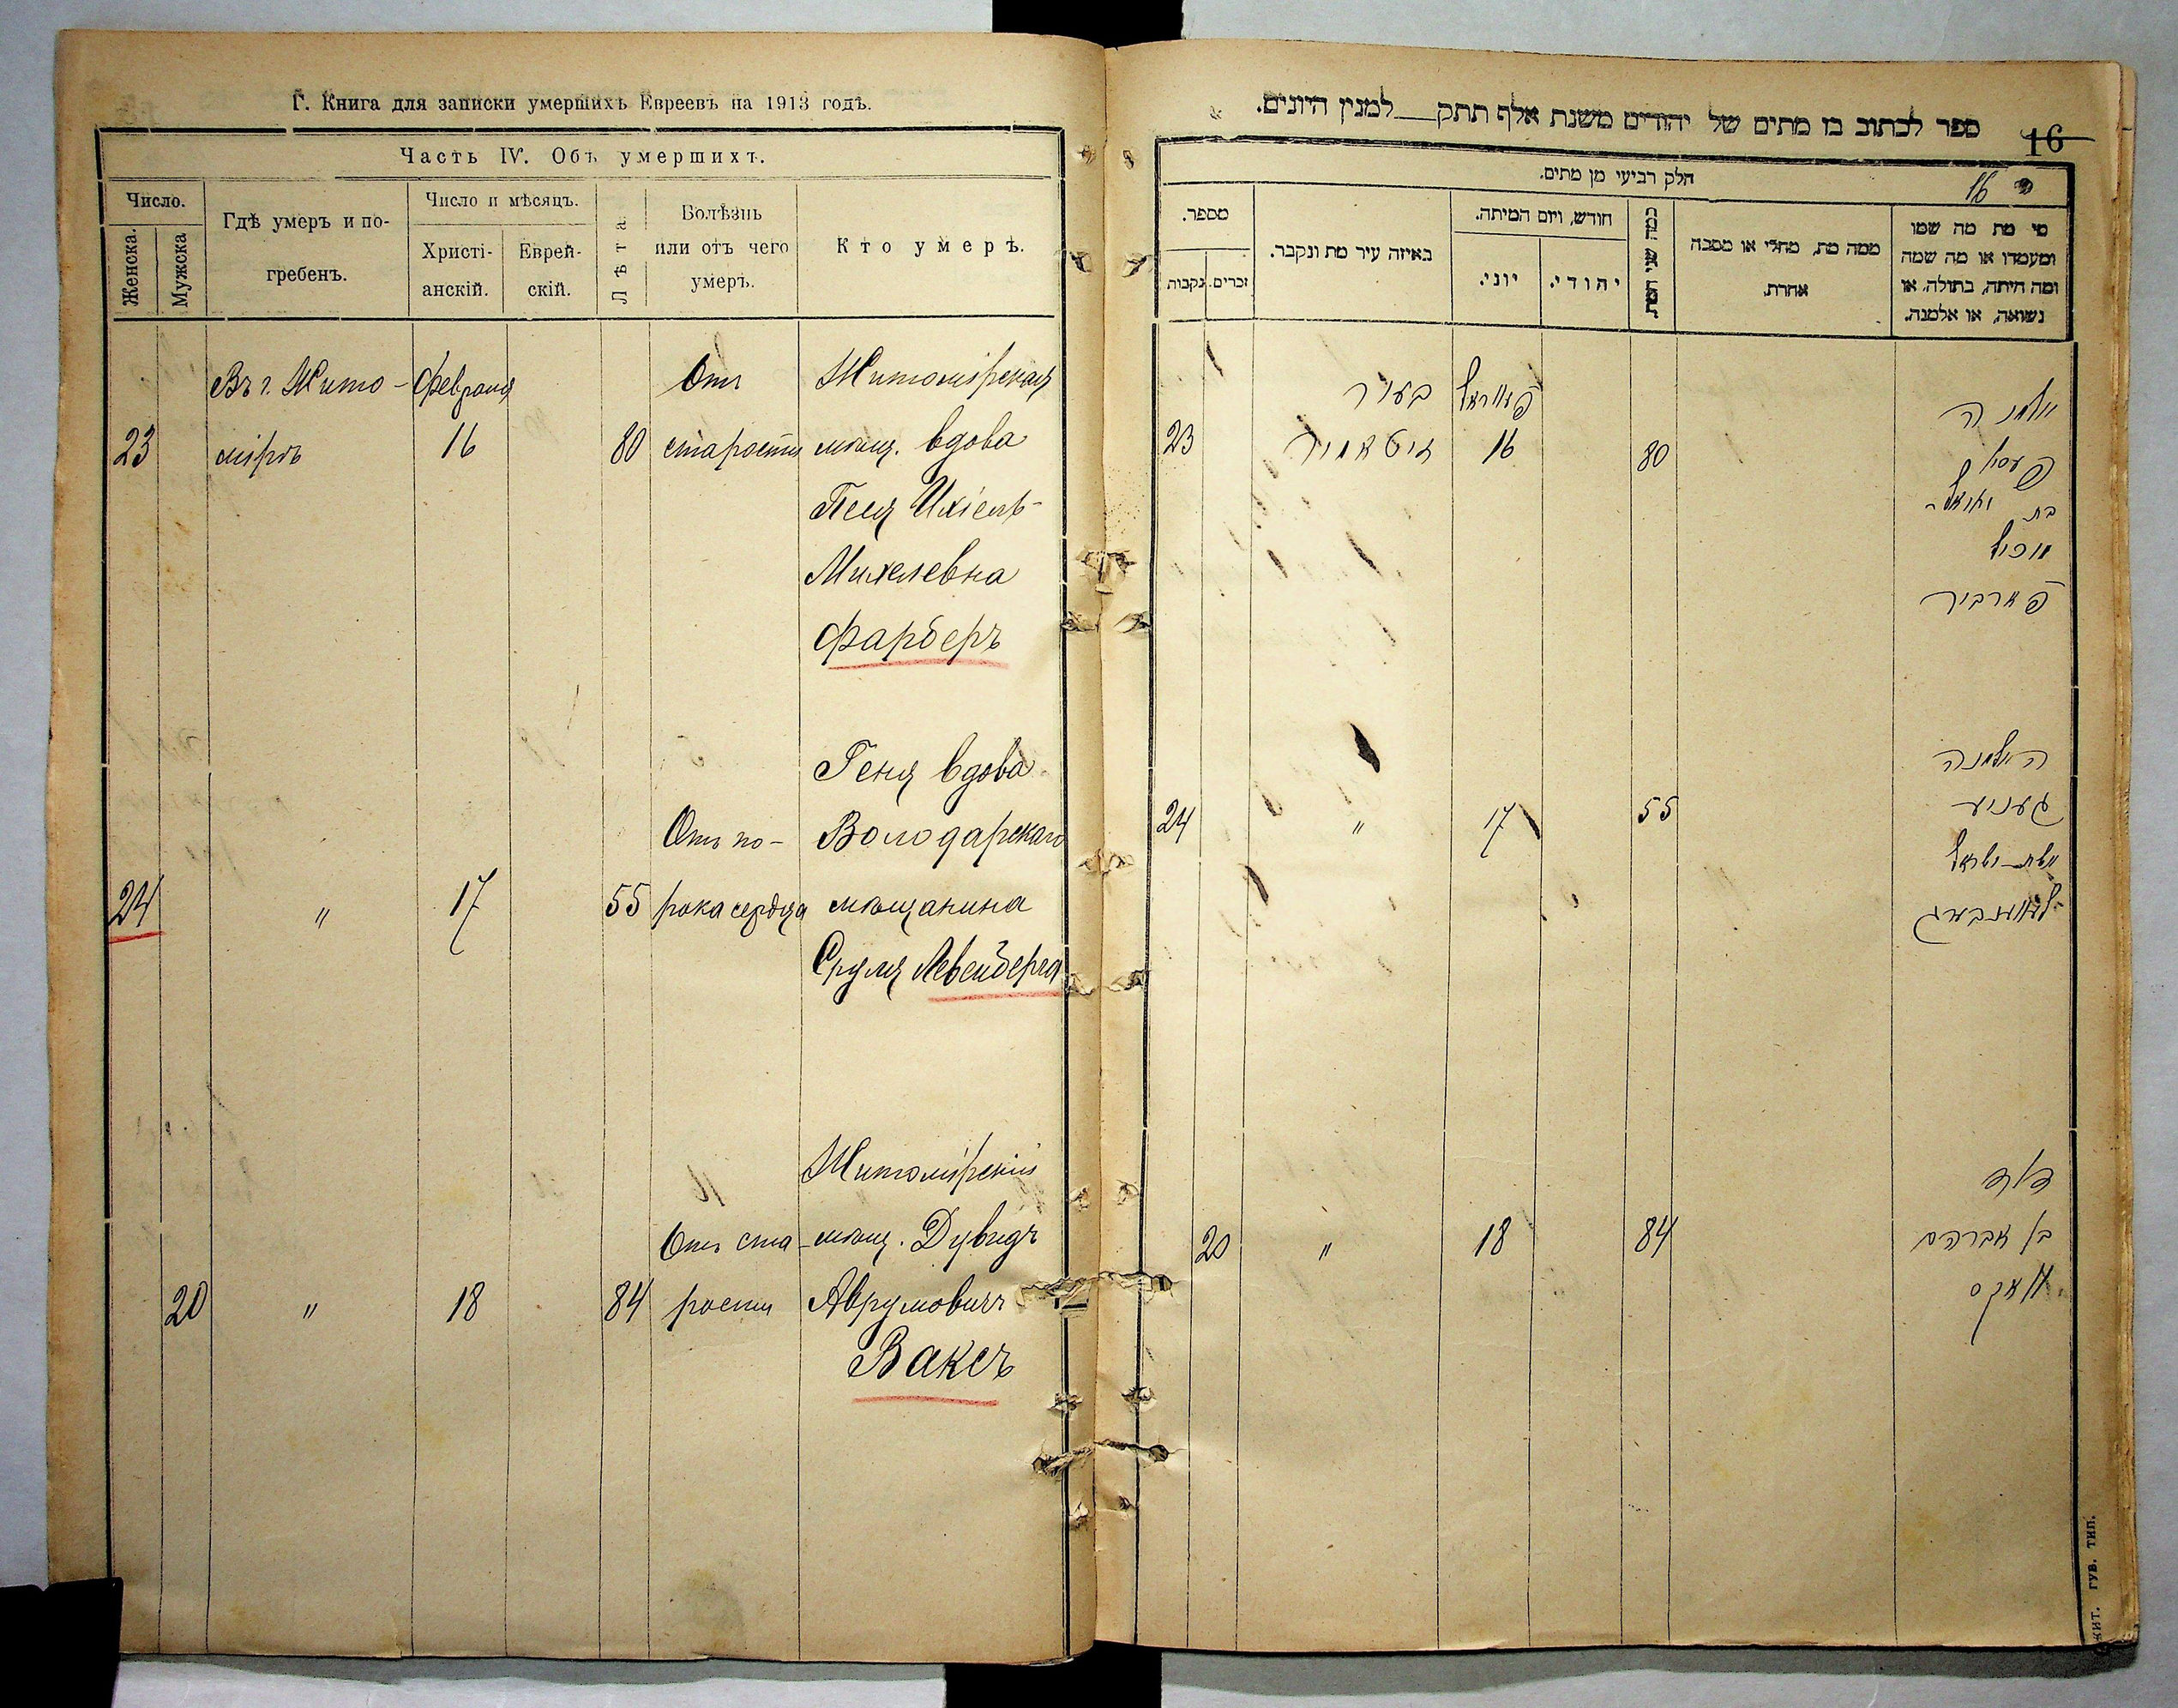 Г. Книга для записки умершихъ Евреевъ на 1913 годъ.
Часть IV. Объ умершихъ.
Число.
Женска.
Мужска
Гдѣ умеръ и по-
гребенъ.
Число и мѣсяцъ.
Христі-
анскій.
Еврей-
скій.
Лѣта
Болѣзнь
или отъ чего
умеръ.
Кто умеръ.
Въ г. Жито- Февраля Отъ Житомірская
23 мірѣ 16 80 старости мѣщ. вдова
Песя Ихіель-
Михелевна
Фарберъ
Геня вдова
Отъ по- Володарскаго
24 " 17 55 рока сердца мѣщанина
Сруля Левенберга
Житомірскій
Отъ ста- мѣщ. Дувидъ
20 " 18 84 рости Аврумовичъ
Ваксъ
ספר לכתוב בו מתים של יהודים משנת אלף תתק למנין היונים.
16
חלק רביעי מן מתים.
16
מי מת מה שמו
ומעמדו או מה שמה
ומה היתה, בתולה, או
נשואה, או אלמנה.
ממה מת, מחלי או מסבה
אחרת.
כמה שני המת
חודש, ויום המיתה.
יהודי.
יוני.
באיזה עיר מת ונקבר.
מספר.
זכרים.
נקבות
אלמנה
בעיר
23 זיטאמיר 16 80
פעסי
בת
מיכל
פארביר
האלמנה
24 " 17 55 געניע
אשת ישראל
לעווענבערג
דוד
20 " 18 84 בן אברהם
וואקס
ЖИТ. ГУБ. ТИП.